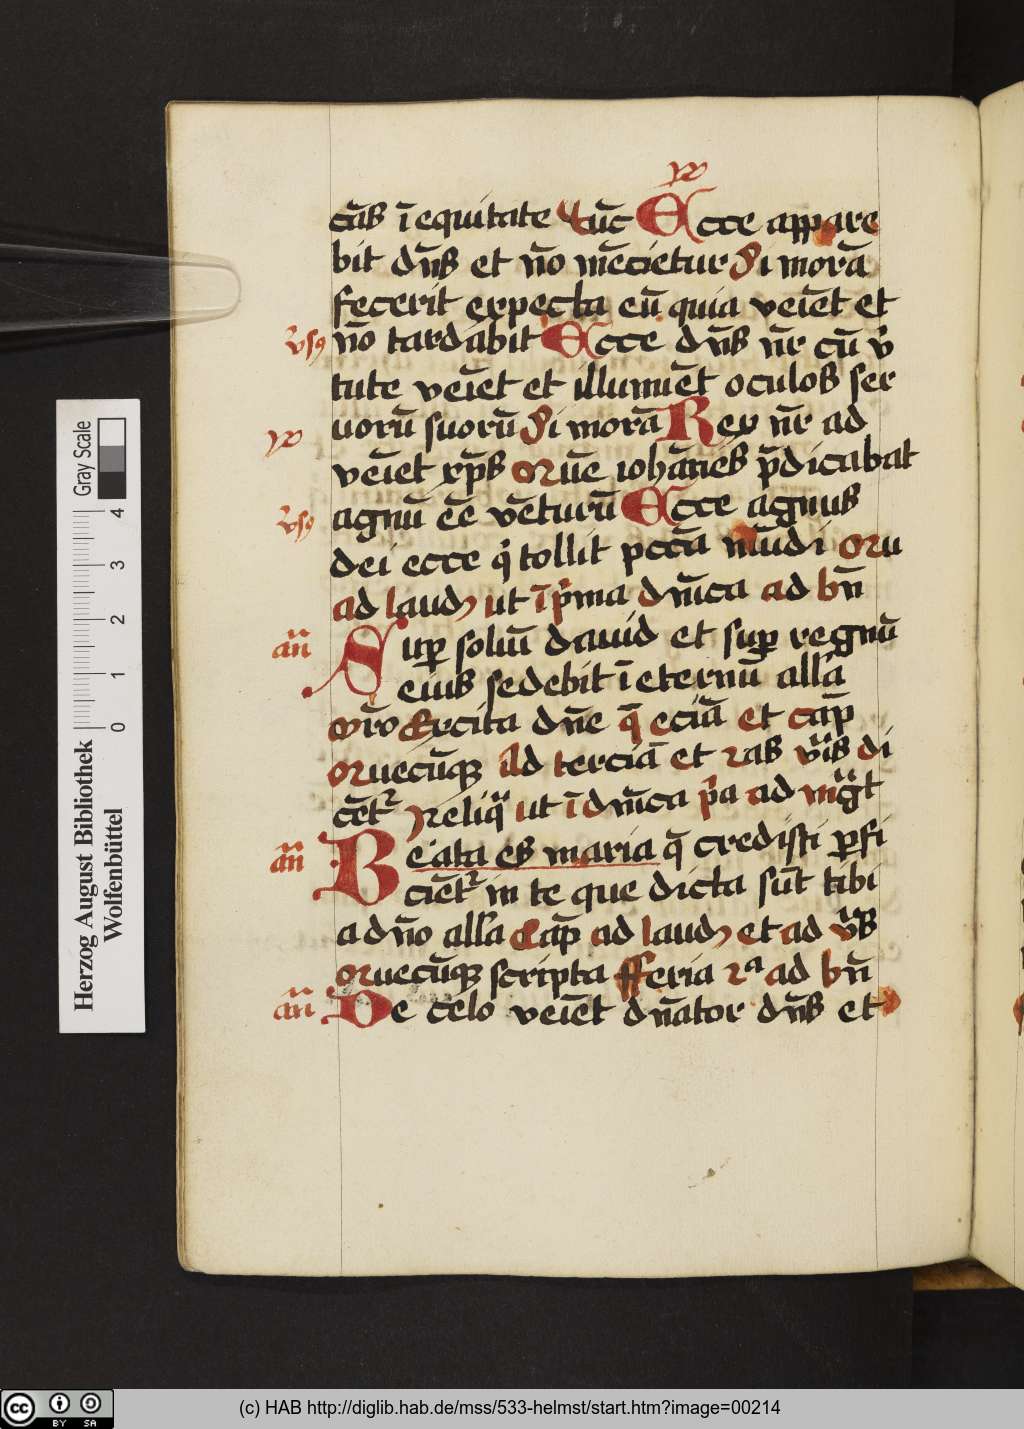 w
cās ī equitate Tūc Ecce appare
bit dn̄s et nō mēcietur Si morā
fecerit expecta eū quia veīet et
vsꝯ nō tardabit Ecce dn̄s nr̄ cū v̓
tute veīet et illumīet oculos ser
uorū suorū Si morā Rex nr̄ ad
veīet xp̄s quē iohānes p̄dicabat
vsꝯ agnū eē vēturū Ecce agnus
dei ecce q̓ tollit pccā mūdi
ad laud ut ī p̓ma dn̄ica ad bn̄
an̄ Suꝑ soliū dauid et suꝑ regnū
eius sedebit ī eternū allā
Excita dn̄e q̄ eciā et cap̄
Ad terciā et di
cēt reliq̄ ut ī dn̄ica p̓a ad mgt̄
an̄ Beata es maria q̄ credisti ꝑfi
ciēt in te que dicta sūt tibi
a dn̄o alla Cap̄ ad laud et ad v̄s
scripta fferia 2ᵃ ad bn̄
an̄ De celo veīet dn̄ator dn̄s et
Gray Scale
0 1 2 3 4
Herzog August Bibliothek
Wolfenbüttel
cc BY SA
(c) HAB http://diglib.hab.de/mss/533-helmst/start.htm?image=00214